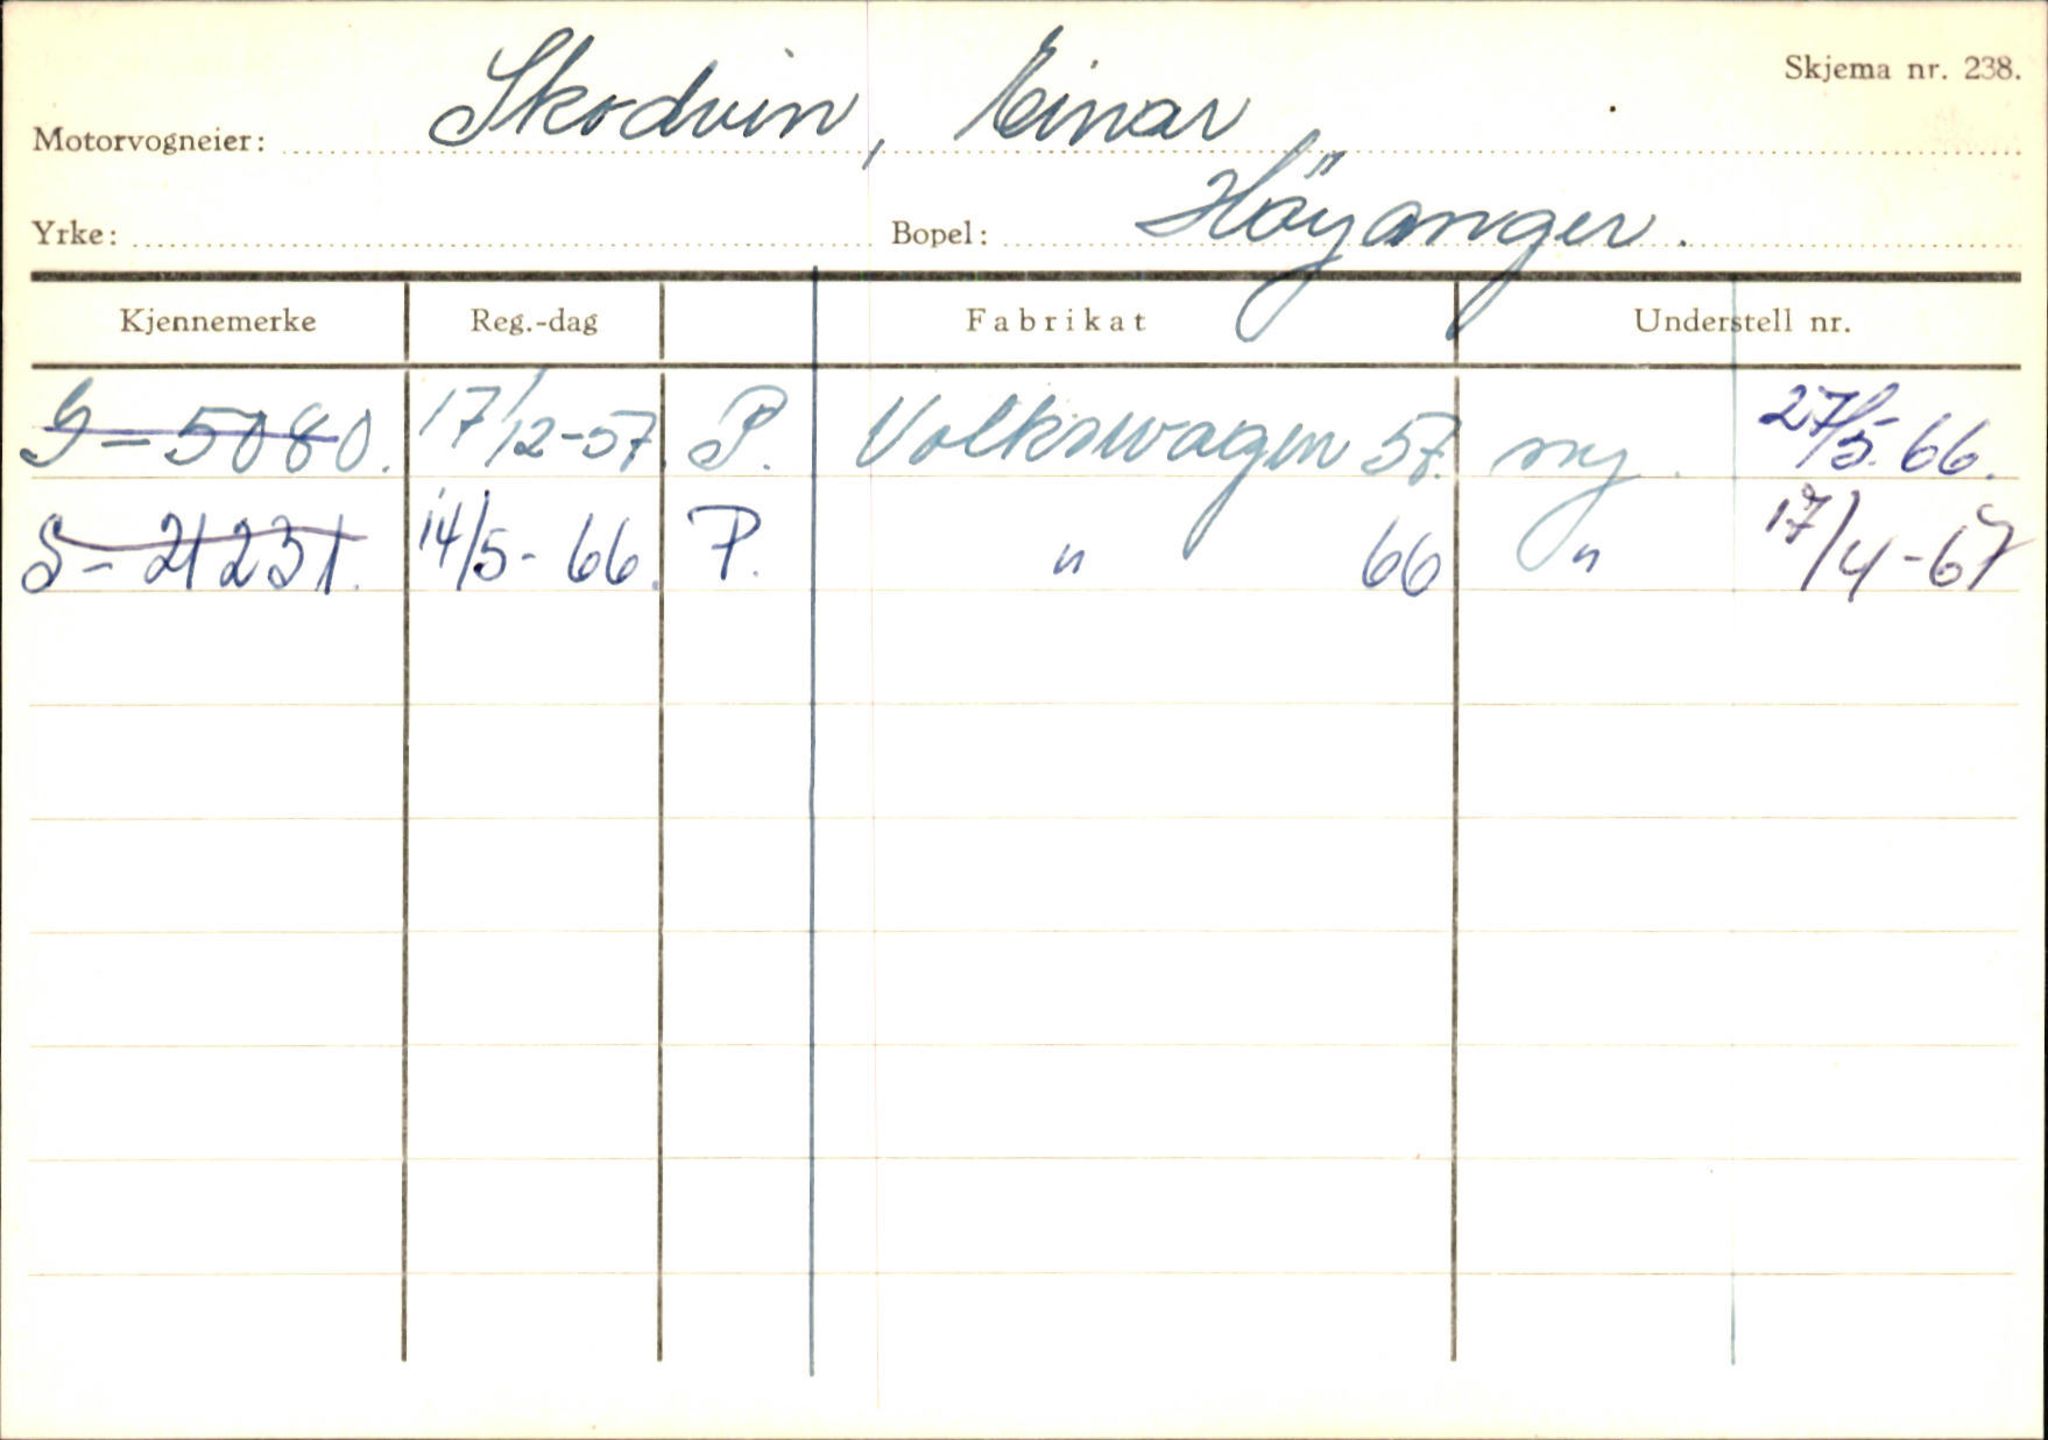 Skjema nr. 238.
Motorvogneier: Skodvin, Einar
Yrke: Bopel: Höyanger.
Kjennemerke Reg.-dag Fabrikat Understell nr.
S-5080. 17/12-57. P. Volkswagen 57. ny. 27/5.66.
S-21231. 14/5-66. P. " 66 " 17/4-67